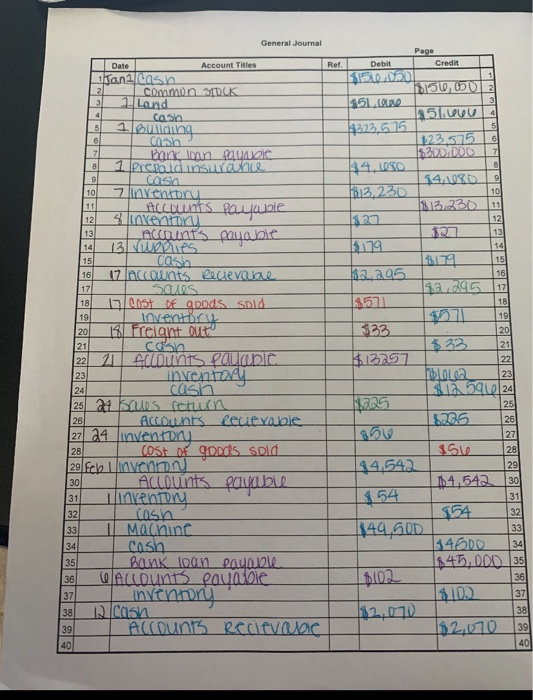 General Journal
Page
Date Account Titles Ref. Debit Credit
1 Jan 1 Cash $156,050 1
2 common stock $156,050 2
3 1 Land $51,000 3
4 cash $51,000 4
5 1 Building $323,575 5
6 cash $23,575 6
7 Bank loan payable $300,000 7
8 1 Prepaid insurance $4,080 8
9 cash $4,080 9
10 7 Inventory $13,230 10
11 Accounts Payable $13,230 11
12 8 Inventory $27 12
13 Accounts payable $27 13
14 13 Supplies $179 14
15 cash $179 15
16 17 Accounts Recievable $2,295 16
17 Sales $2,295 17
18 17 cost of goods sold $571 18
19 Inventory $571 19
20 18 Freight out $33 20
21 cash $33 21
22 21 Accounts payable $13257 22
23 inventory 23
24 cash 24
25 24 Sales return $225 25
26 Accounts recievable $225 26
27 24 inventory $56 27
28 cost of goods sold $56 28
29 Feb 1 Inventory $4,542 29
30 Accounts payable $4,542 30
31 1 Inventory $54 31
32 cash $54 32
33 1 Machine $49,500 33
34 cash $4500 34
35 Bank loan payable $45,000 35
36 6 Accounts payable $102 36
37 inventory $102 37
38 12 Cash $2,070 38
39 Accounts Recievable $2,070 39
40 40